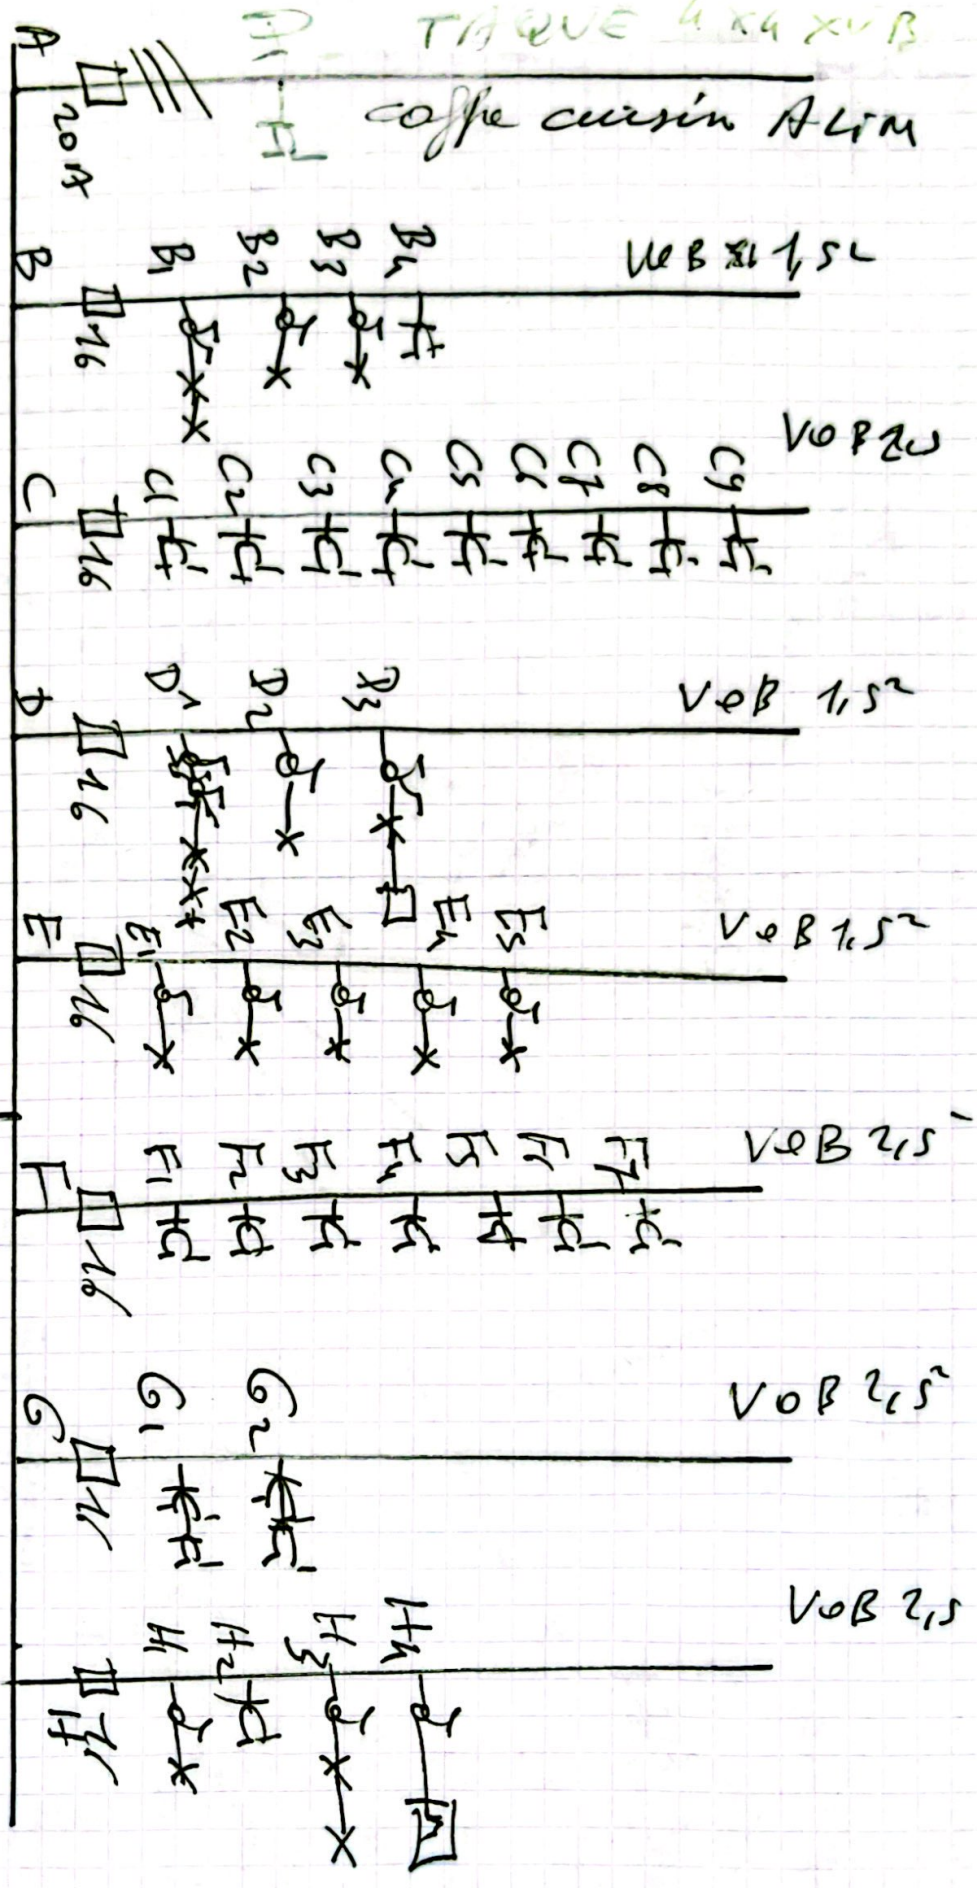 TAQUE 4x4 XVB
A
20A
coffre cuisin ALiM
B
16
B1 B2 B3 B4
VOB 1,5²
C
16
C1 C2 C3 C4 C5 C6 C7 C8 C9
VOB 2,5
D
16
D1 D2 D3
VOB 1,5²
E
16
E1 E2 E3 E4 E5
VOB 1,5²
F
16
F1 F2 F3 F4 F5 F6 F7
VOB 2,5²
G
16
G1 G2
VOB 2,5²
H
16
H1 H2 H3 H4
VOB 2,5